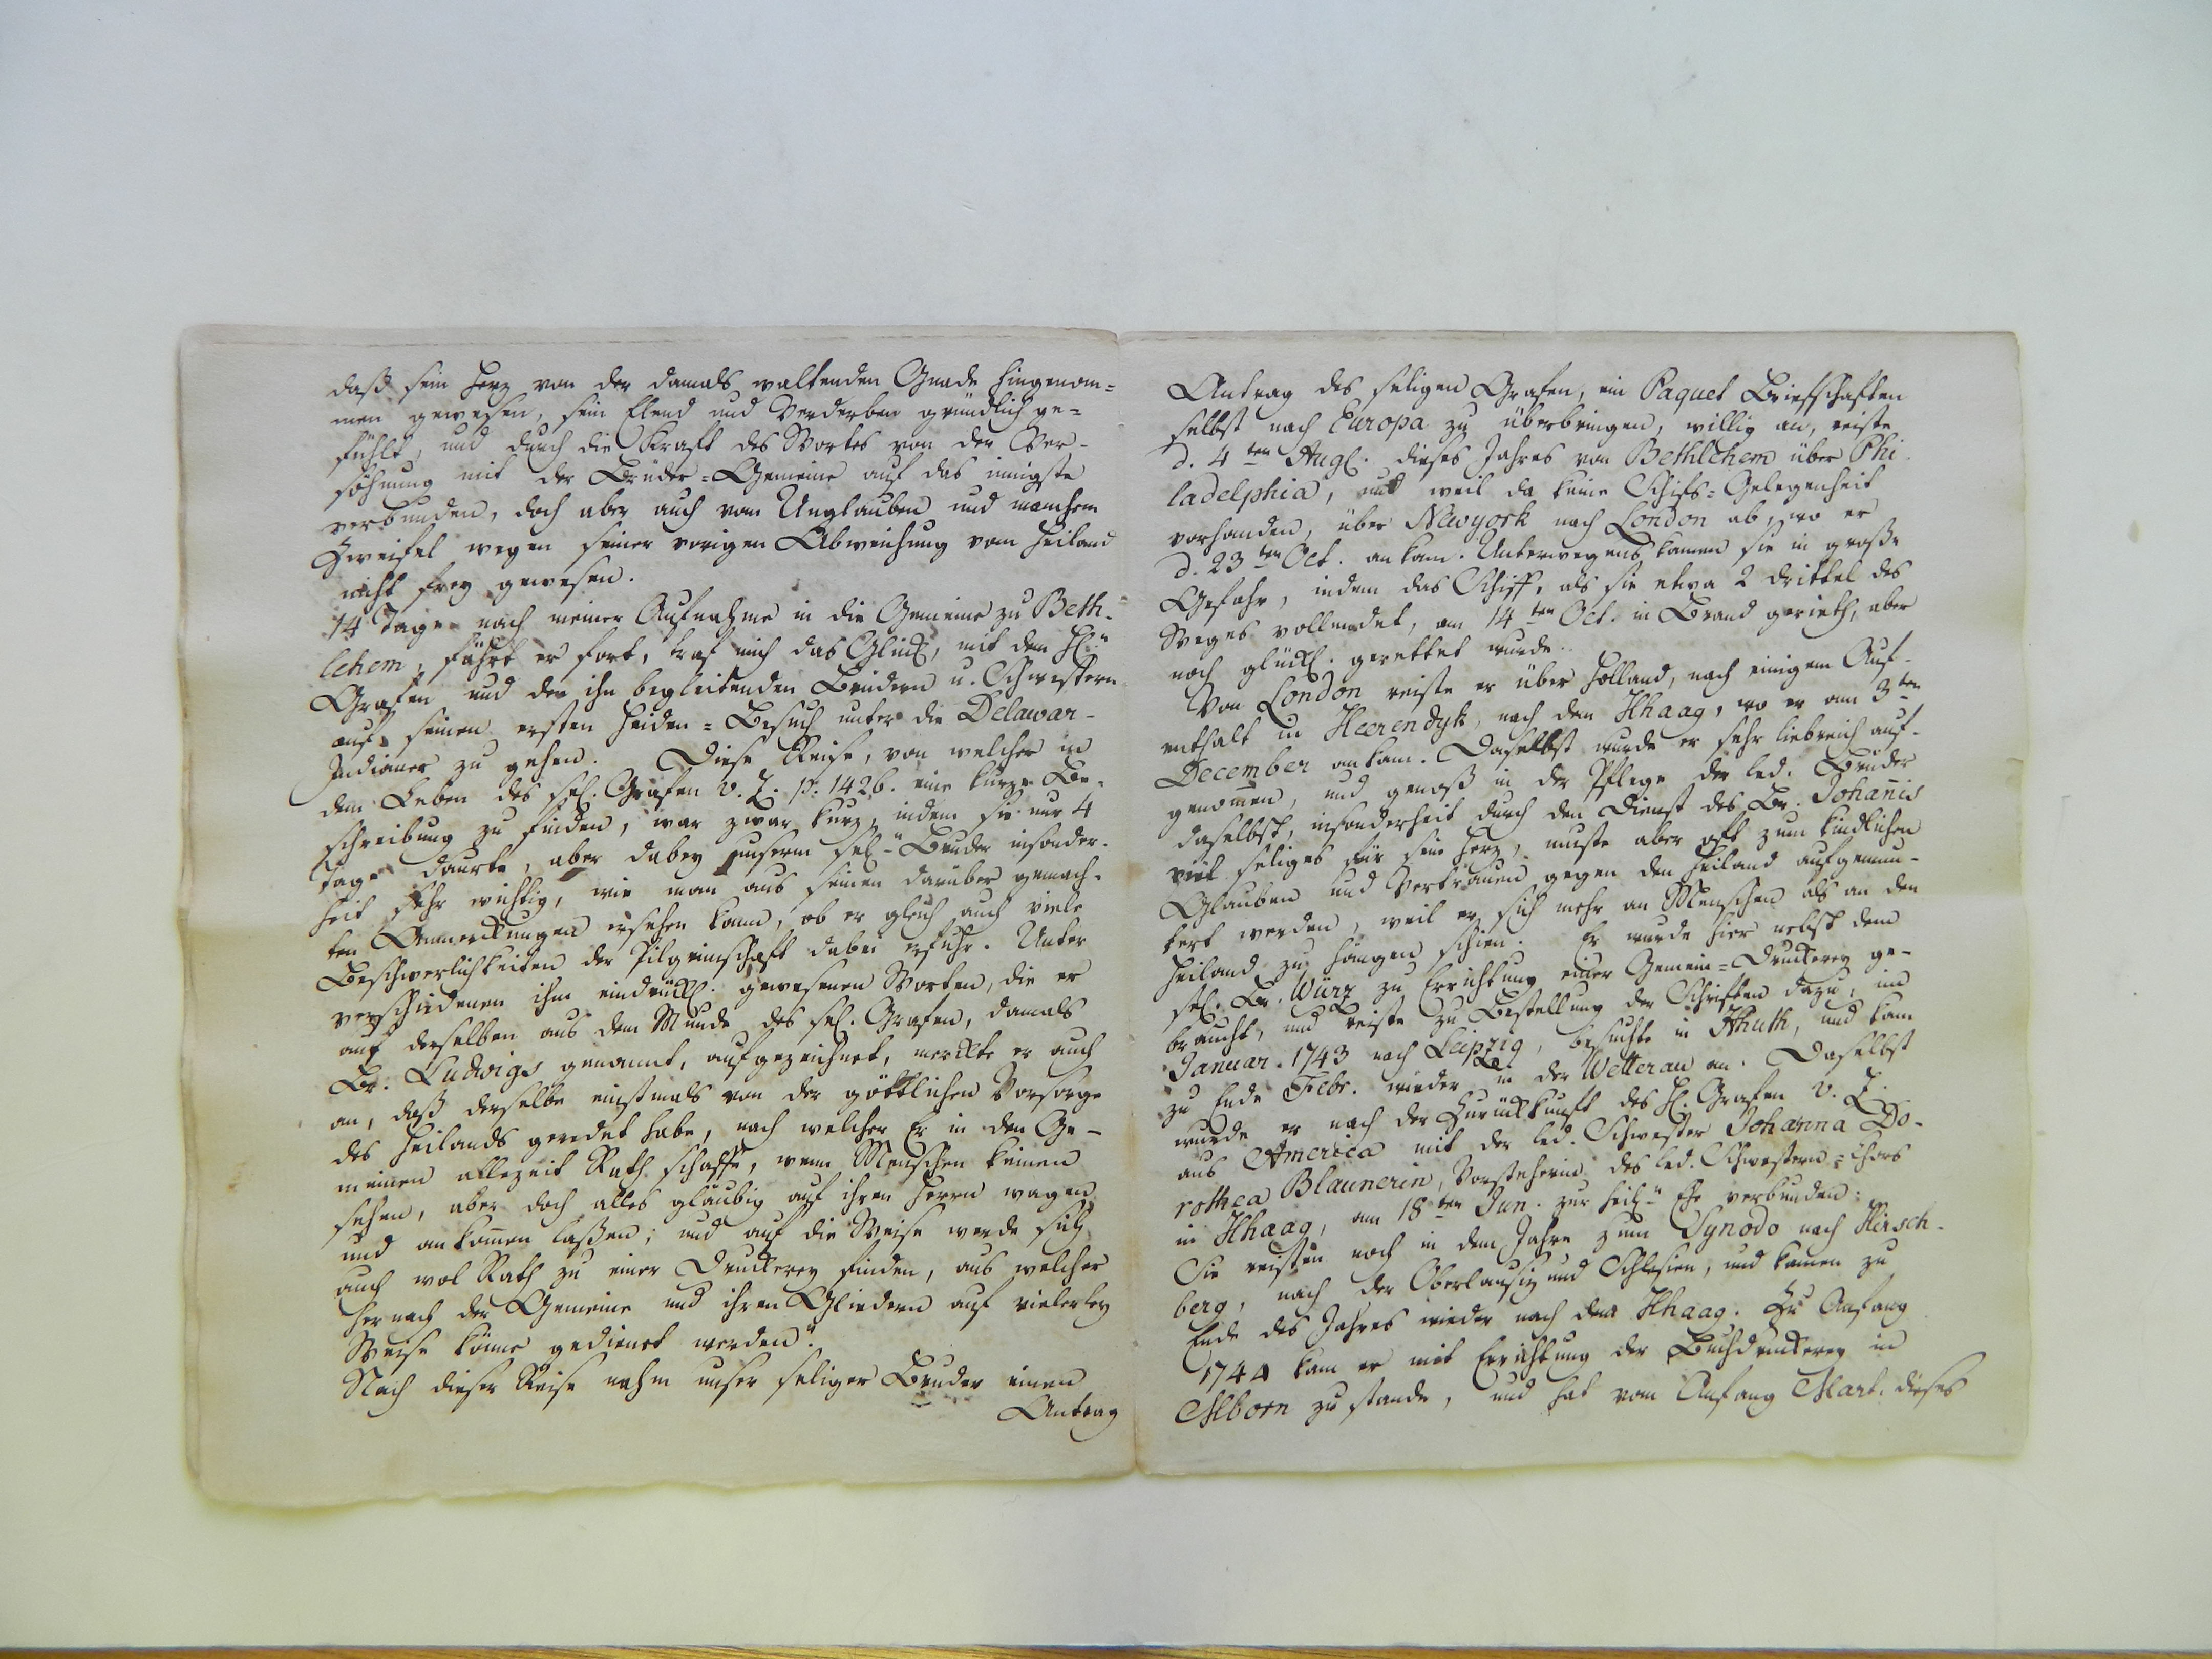 daß sein Herz von der damals waltenden Gnade hingenom=
men gewesen, sein Elend und Verderben gründlich ge=
fühlt, und durch die Kraft des Wortes von der Ver-
söhnung mit der Brüder=Gemeine auf das innigste
verbunden, doch aber auch von Unglauben und manchem
Zweifel wegen seiner vorigen Abweichung vom Heiland
nicht frey gewesen.
14 Tage nach meiner Aufnahme in die Gemeine zu Beth-
lehem, fährt er fort, traf mich das Glück, mit dem
Grafen und den ihn begleitenden Brüdern u. Schwestern
auf seinen ersten Heiden=Besuch unter die Delawar-
Indianer zu gehen. Diese Reise, von welcher in
dem Leben des sel. Grafen v. Z. p. 1426. eine kurze Be-
schreibung zu finden, war zwar kurz, indem sie nur 4
Tage daurte, aber dabey unserm sel. Bruder insonder-
heit sehr wichtig, wie man aus seinen darüber gemach-
ten Anmerckungen ersehen kann, ob er gleich auch viele
Beschwerlichkeiten der Pilgerschaft dabei erfuhr. Unter
verschiedenen ihm eindrückl. gewesenen Worten, die er
auf derselben aus dem Munde des sel. Grafen, damals
Br. Ludwigs genannt, aufgezeichnet, merckte er auch
an, daß derselbe einstmals von der göttlichen Vorsorge
des Heilands geredet habe, nach welcher Er in den Ge-
meinen allezeit Rath schaffe, wenn Menschen keinen
sehen, aber doch alles gläubig auf ihren Herrn wagen
und ankom̄en laßen; und auf die Weise werde sich
auch wol Rath zu einer Druckerey finden, aus welcher
hernach der Gemeine und ihren Gliedern auf vielerley
Weise könne gedienet werden".
Nach dieser Reise nahm unser seliger Bruder einen
Antrag
Antrag des seligen Grafen, ein Paquet Briefschaften
selbst nach Europa zu überbringen, willig an, reiste
d. 4ten Aug. dieses Jahres von Bethlehem über Phi-
ladelphia, und weil da keine Schifs=Gelegenheit
vorhanden, über Newyork nach London ab, wo er
d. 23ten Oct. ankam. Unterwegens kamen sie in große
Gefahr, indem das Schiff, als sie etwa 2 drittel des
Weges vollendet, am 14ten Oct. in Brand gerieth, aber
noch glückl. gerettet wurde.
Von London reiste er über Holland, nach einigem Auf-
enthalt in Heerendyk, nach dem Hhaag, wo er am 3ten
December ankam. Daselbst wurde er sehr liebreich auf-
genom̄en, und genoß in der Pflege der led. Brüder
daselbst, insonderheit durch den Dienst des Br. Johan̄is
viel seliges für sein Herz, muste aber oft zum kindlichen
Glauben und Vertrauen gegen den Heiland aufgemun-
tert werden, weil er sich mehr an Menschen als an den
Heiland zu hängen schien. Er wurde hier nebst dem
sel. Br. Würz zu Errichtung einer Gemein=Druckerey ge-
braucht, und reiste zu Bestellung der Schriften dazu, im
Januar. 1743 nach Leipzig, besuchte in Hhuth, und kam
zu Ende Febr. wieder in der Wetterau an. Daselbst
wurde er nach der Zurückkunft des sel. Grafen v. Z.
aus America mit der led. Schwester Johanna Do-
rothea Blaunerin, Vorsteherin des led. Schwestern=Chors
in Hhaag, am 18ten Jun. zur heil. Ehe verbunden.
Sie reisten noch in dem Jahre zum Synodo nach Hirsch-
berg, nach der Oberlausiz und Schlesien, und kamen zu
Ende des Jahres wieder nach dem Hhaag. Zu Anfang
1744 kam er mit Errichtung der Buchdruckerey in
Mborn zu stande, und hat vom Anfang Mart. dieses